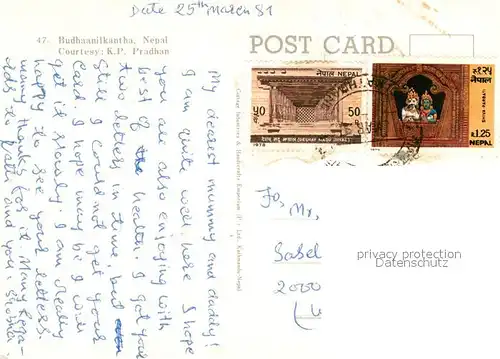 Date 25th March 81
47. Budhanilkantha, Nepal
Courtesy: K.P. Pradhan
POST CARD
नेपाल NEPAL
५०
50
1978
रु१.२५
नेपाल
SHIVA PARBATI
R.1.25
My dearest mummy and daddy!
I am quite well here & hope
you are also enjoying with
best of the health. I got your
two letters in time, but
Still I could not get your
Card I hope may be I will
get it slowly. I am really
happy to see your letters.
many thanks for it. Many Rega-
rds to both and you.
To,
Mr,
Sabel
2000
privacy protection
Datenschutz